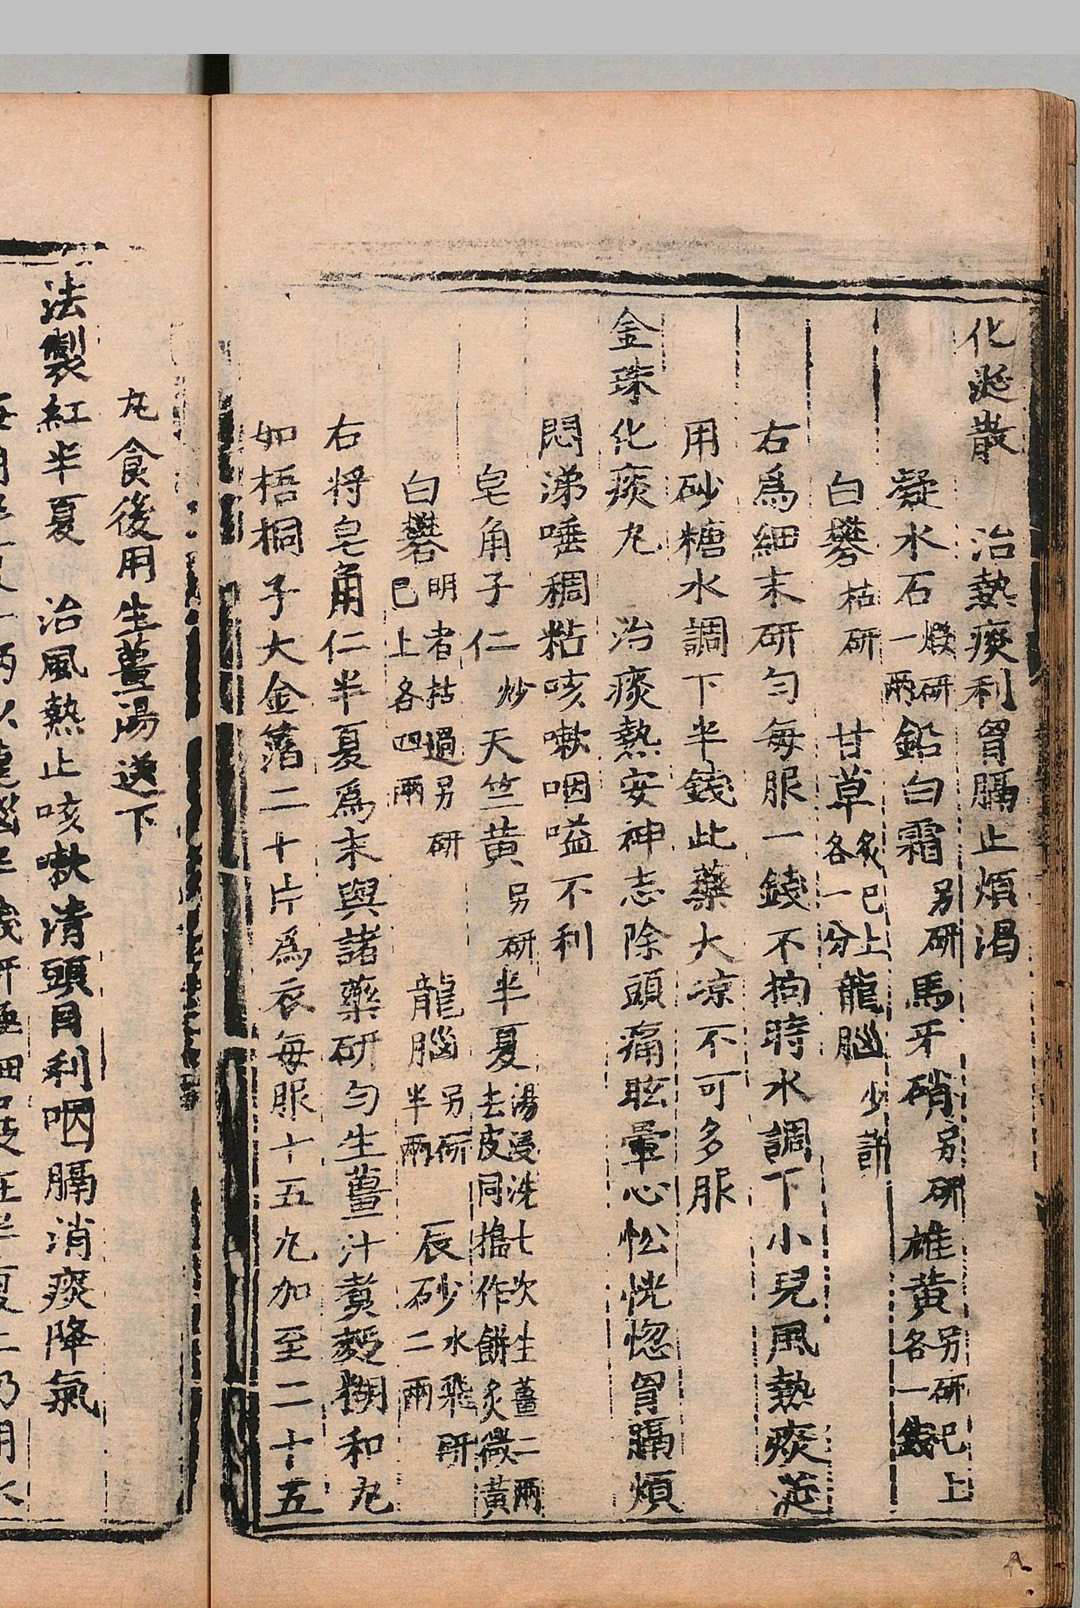 化涎散　治熱痰利胷膈止煩渴
凝水石煅研一兩鉛白霜另研馬牙硝另研雄黃另研已上各一錢
白礬枯研　甘草炙已上各一分龍腦少許
右爲細末研勻每服一錢不拘時水調下小兒風熱痰涎
用砂糖水調下半錢此藥大凉不可多服
金珠化痰丸　治痰熱安神志除頭痛眩暈心忪恍惚胷膈煩
悶涕唾稠粘咳嗽咽嗌不利
皂角子仁炒　天竺黃另研半夏湯浸洗七次生薑二兩去皮同搗作餅炙微黃
白礬明者枯過另研已上各四兩　龍腦另研半兩　辰砂水飛研二兩
右將皂角仁半夏爲末與諸藥研勻生薑汁煑麪糊和丸
如梧桐子大金箔二十片爲衣每服十五丸加至二十五
丸食後用生薑湯送下
法製紅半夏　治風熱止咳嗽清頭目利咽膈消痰降氣